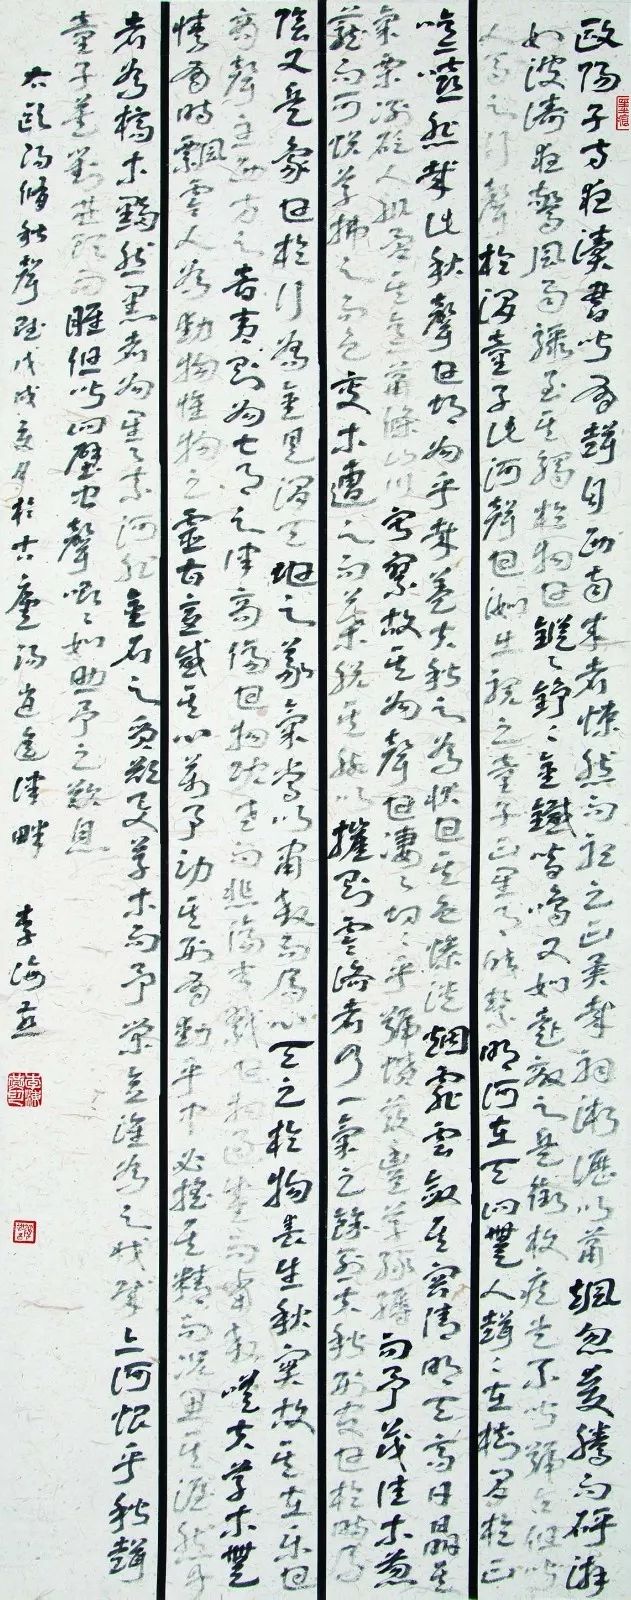 歐陽子方夜讀書聞有聲自西南來者悚然而聽之曰異哉初淅瀝以蕭颯忽奔騰而砰湃
如波濤夜驚風雨驟至其觸於物也鏦々錚々金鐵皆鳴又如赴敵之兵銜枚疾走不聞號令但聞
人馬之行聲於謂童子此何聲也汝出視之童子曰星月皎潔明河在天四無人聲々在樹間於曰
噫嘻哉此秋聲也胡為乎哉蓋夫秋之為狀也其色慘淡煙霏雲斂其容清明天高日晶其
氣栗冽砭人肌骨其意蕭條山川寂寥故其為聲也淒々切々乎號憤發豐草綠縟而爭茂佳木蔥
蘢而可悅草拂之而色變木遭之而葉脫其所以摧敗零落者乃一氣之餘烈夫秋刑官也於時為
陰又兵象也於行為金是謂天地之義氣常以肅殺而為心天之於物春生秋實故其在樂也
商聲主西方之音夷則為七月之律商傷也物既老而悲傷夷戮也物過盛而當殺嗟夫草木無
情有時飄零人為動物惟物之靈百憂感其心萬事勞其形有動乎中必搖其精而況思其渥然丹
者為槁木黟然黑者為星々奈何非金石之質欲與草木而爭榮念誰為之戕賊亦何恨乎秋聲
童子莫對垂頭而睡但聞四壁蟲聲唧々如助予之歎息
右歐陽修秋聲賦戊戌夏月於古廬陽逍遙津畔 李海燕